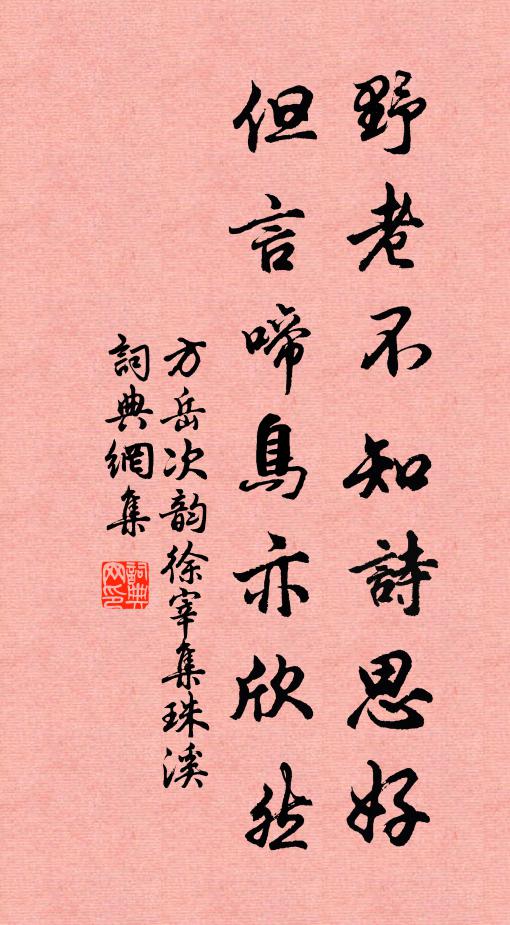 野老不知詩思好
但言啼鳥亦欣然
方岳次韵徐宰集珠溪
詞典網集
詞典网印